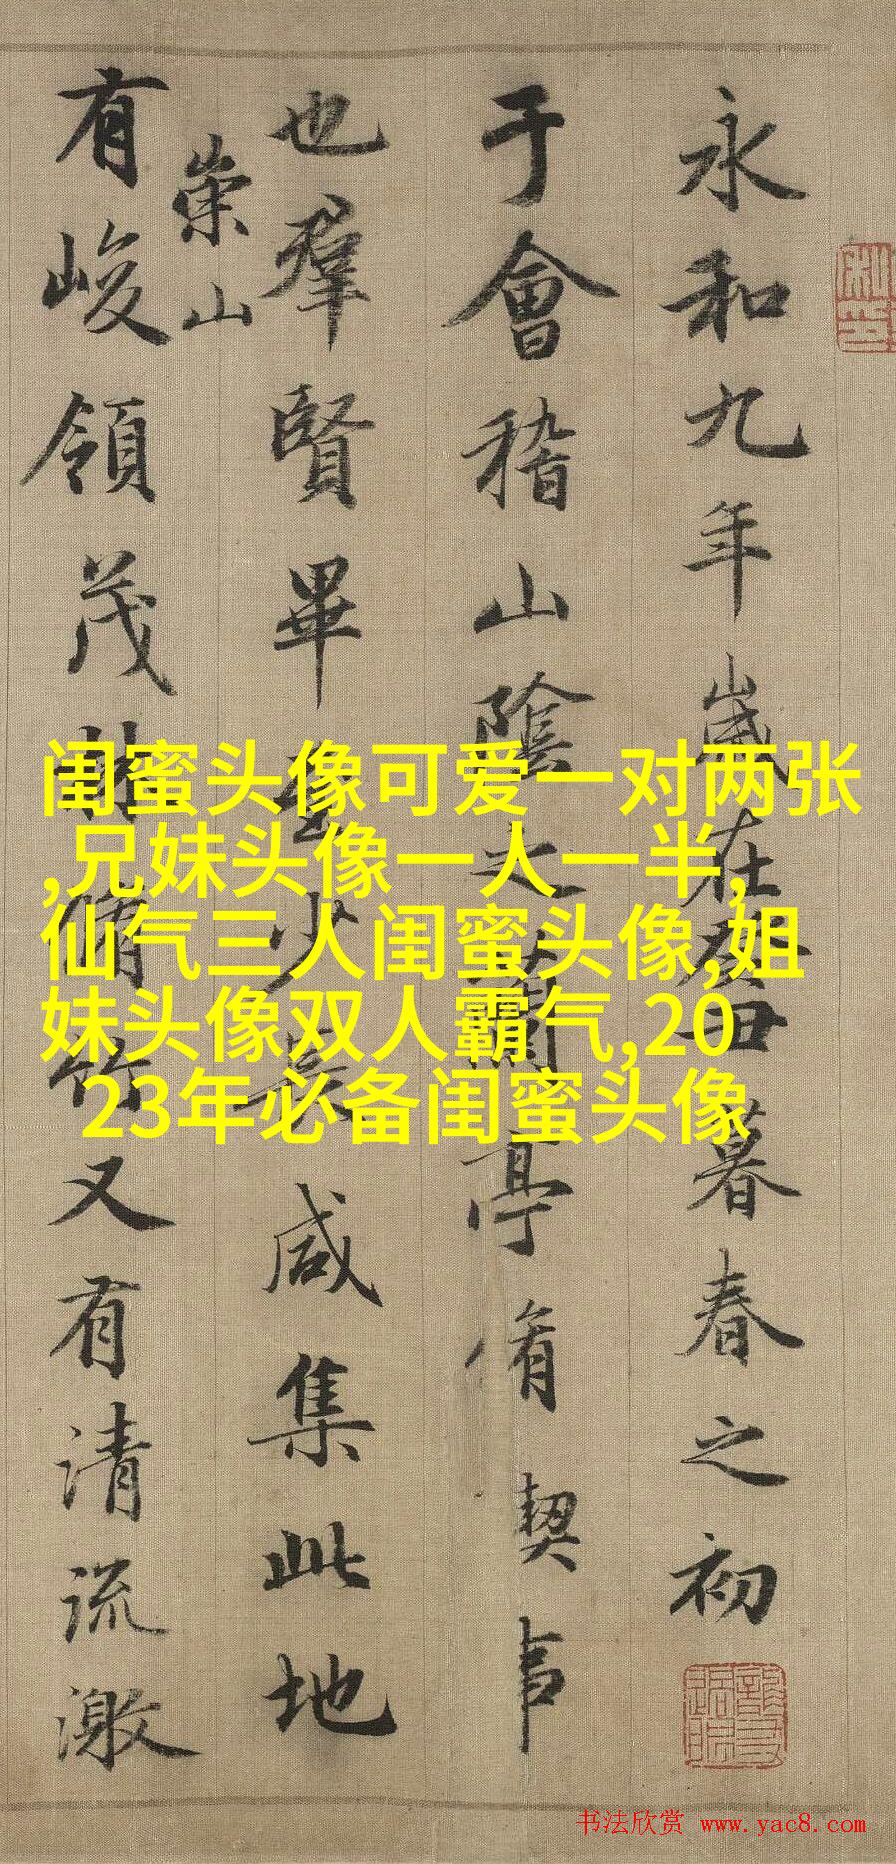 永和九年歲在癸丑暮春之初
于會稽山陰之蘭亭脩契事
也羣賢畢至少長咸集此地
崇山
有峻領茂林脩竹又有清流激
闺蜜头像可爱一对两张
,兄妹头像一人一半,
仙气三人闺蜜头像,姐
妹头像双人霸气,20
23年必备闺蜜头像
书法欣赏 www.yac8.com